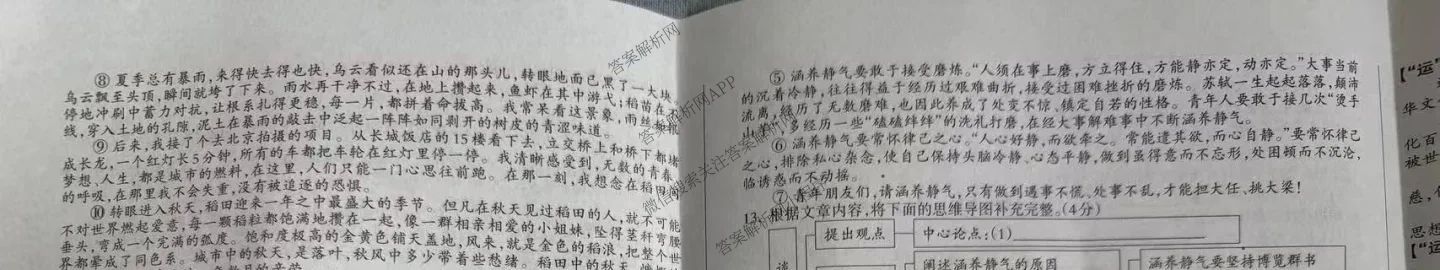 ⑧ 夏季总有暴雨,来得快去得也快,乌云看似还在山的那头儿,转眼地面已黑了一大块,
乌云飘至头顶,瞬间就垮了下来。雨水再干净不过,在地上攒起来,鱼虾在其中游弋;稻苗在不
停地冲刷中蓄力对抗,让根系扎得更稳,每一片,都拼着命拔高。我常呆看这景象,雨丝
线,穿入土地的孔隙,泥土在暴雨的敲击中泛起一阵阵如同剥开的树皮的青涩味道。
⑨ 后来,我接了个去北京拍摄的项目。从长城饭店的15楼看下去,立交桥上和桥下都堵
成长龙,一个红灯长5分钟,所有的车都把车轮在红灯里停一停。我清晰感受到,无数的青春、
梦想、人生,都是城市的燃料,在这里,人们只能一门心思往前跑。在那一刻,我想念在稻田
的呼吸,在那里我不会失重,没有被追逐的恐惧。
⑩ 转眼进入秋天,稻田迎来一年之中最盛大的季节。但凡在秋天见过稻田的人,就不可能
不对世界燃起爱意,每一颗稻粒都饱满地攒在一起,像一群相亲相爱的小姐妹,坠得茎秆弯腰
垂头,弯成一个完满的弧度。饱和度极高的金黄色铺天盖地,风来,就是金色的稻浪,把整个世
界都晕成了同色系。城市中的秋天,是落叶,秋风中多少带着些愁绪。稻田中的秋天
⑤ 涵养静气要敢于接受磨炼。“人须在事上磨,方立得住,方能静亦定,动亦定。”大事当前
的沉着冷静,往往得益于经历过艰难曲折,接受过困难挫折的磨炼。苏轼一生起起落落,颠沛
流离,经历了无数磨难,也因此养成了处变不惊、镇定自若的性格。青年人要敢于接几次“烫手
山芋”,多经历一些“磕磕绊绊”的洗礼打磨,在经大事解难事中不断涵养静气。
⑥ 涵养静气要常怀律己之心。“人心好静,而欲牵之。常能遣其欲,而心自静。”要常怀律己
之心,排除私心杂念,使自己保持头脑冷静、心态平静,做到虽得意而不忘形,处困顿而不沉沦,
临诱惑而不动摇。
⑦ 青年朋友们,请涵养静气,只有做到遇事不慌、处事不乱,才能担大任、挑大梁!
13. 根据文章内容,将下面的思维导图补充完整。(4分)
提出观点
中心论点:(1)
阐述涵养静气的原因
涵养静气要坚持博览群书
【“运”
华文
化百
被世
慈,
思想
【“运
答案解析网
答案解析网APP
微信搜索关注答案解析网